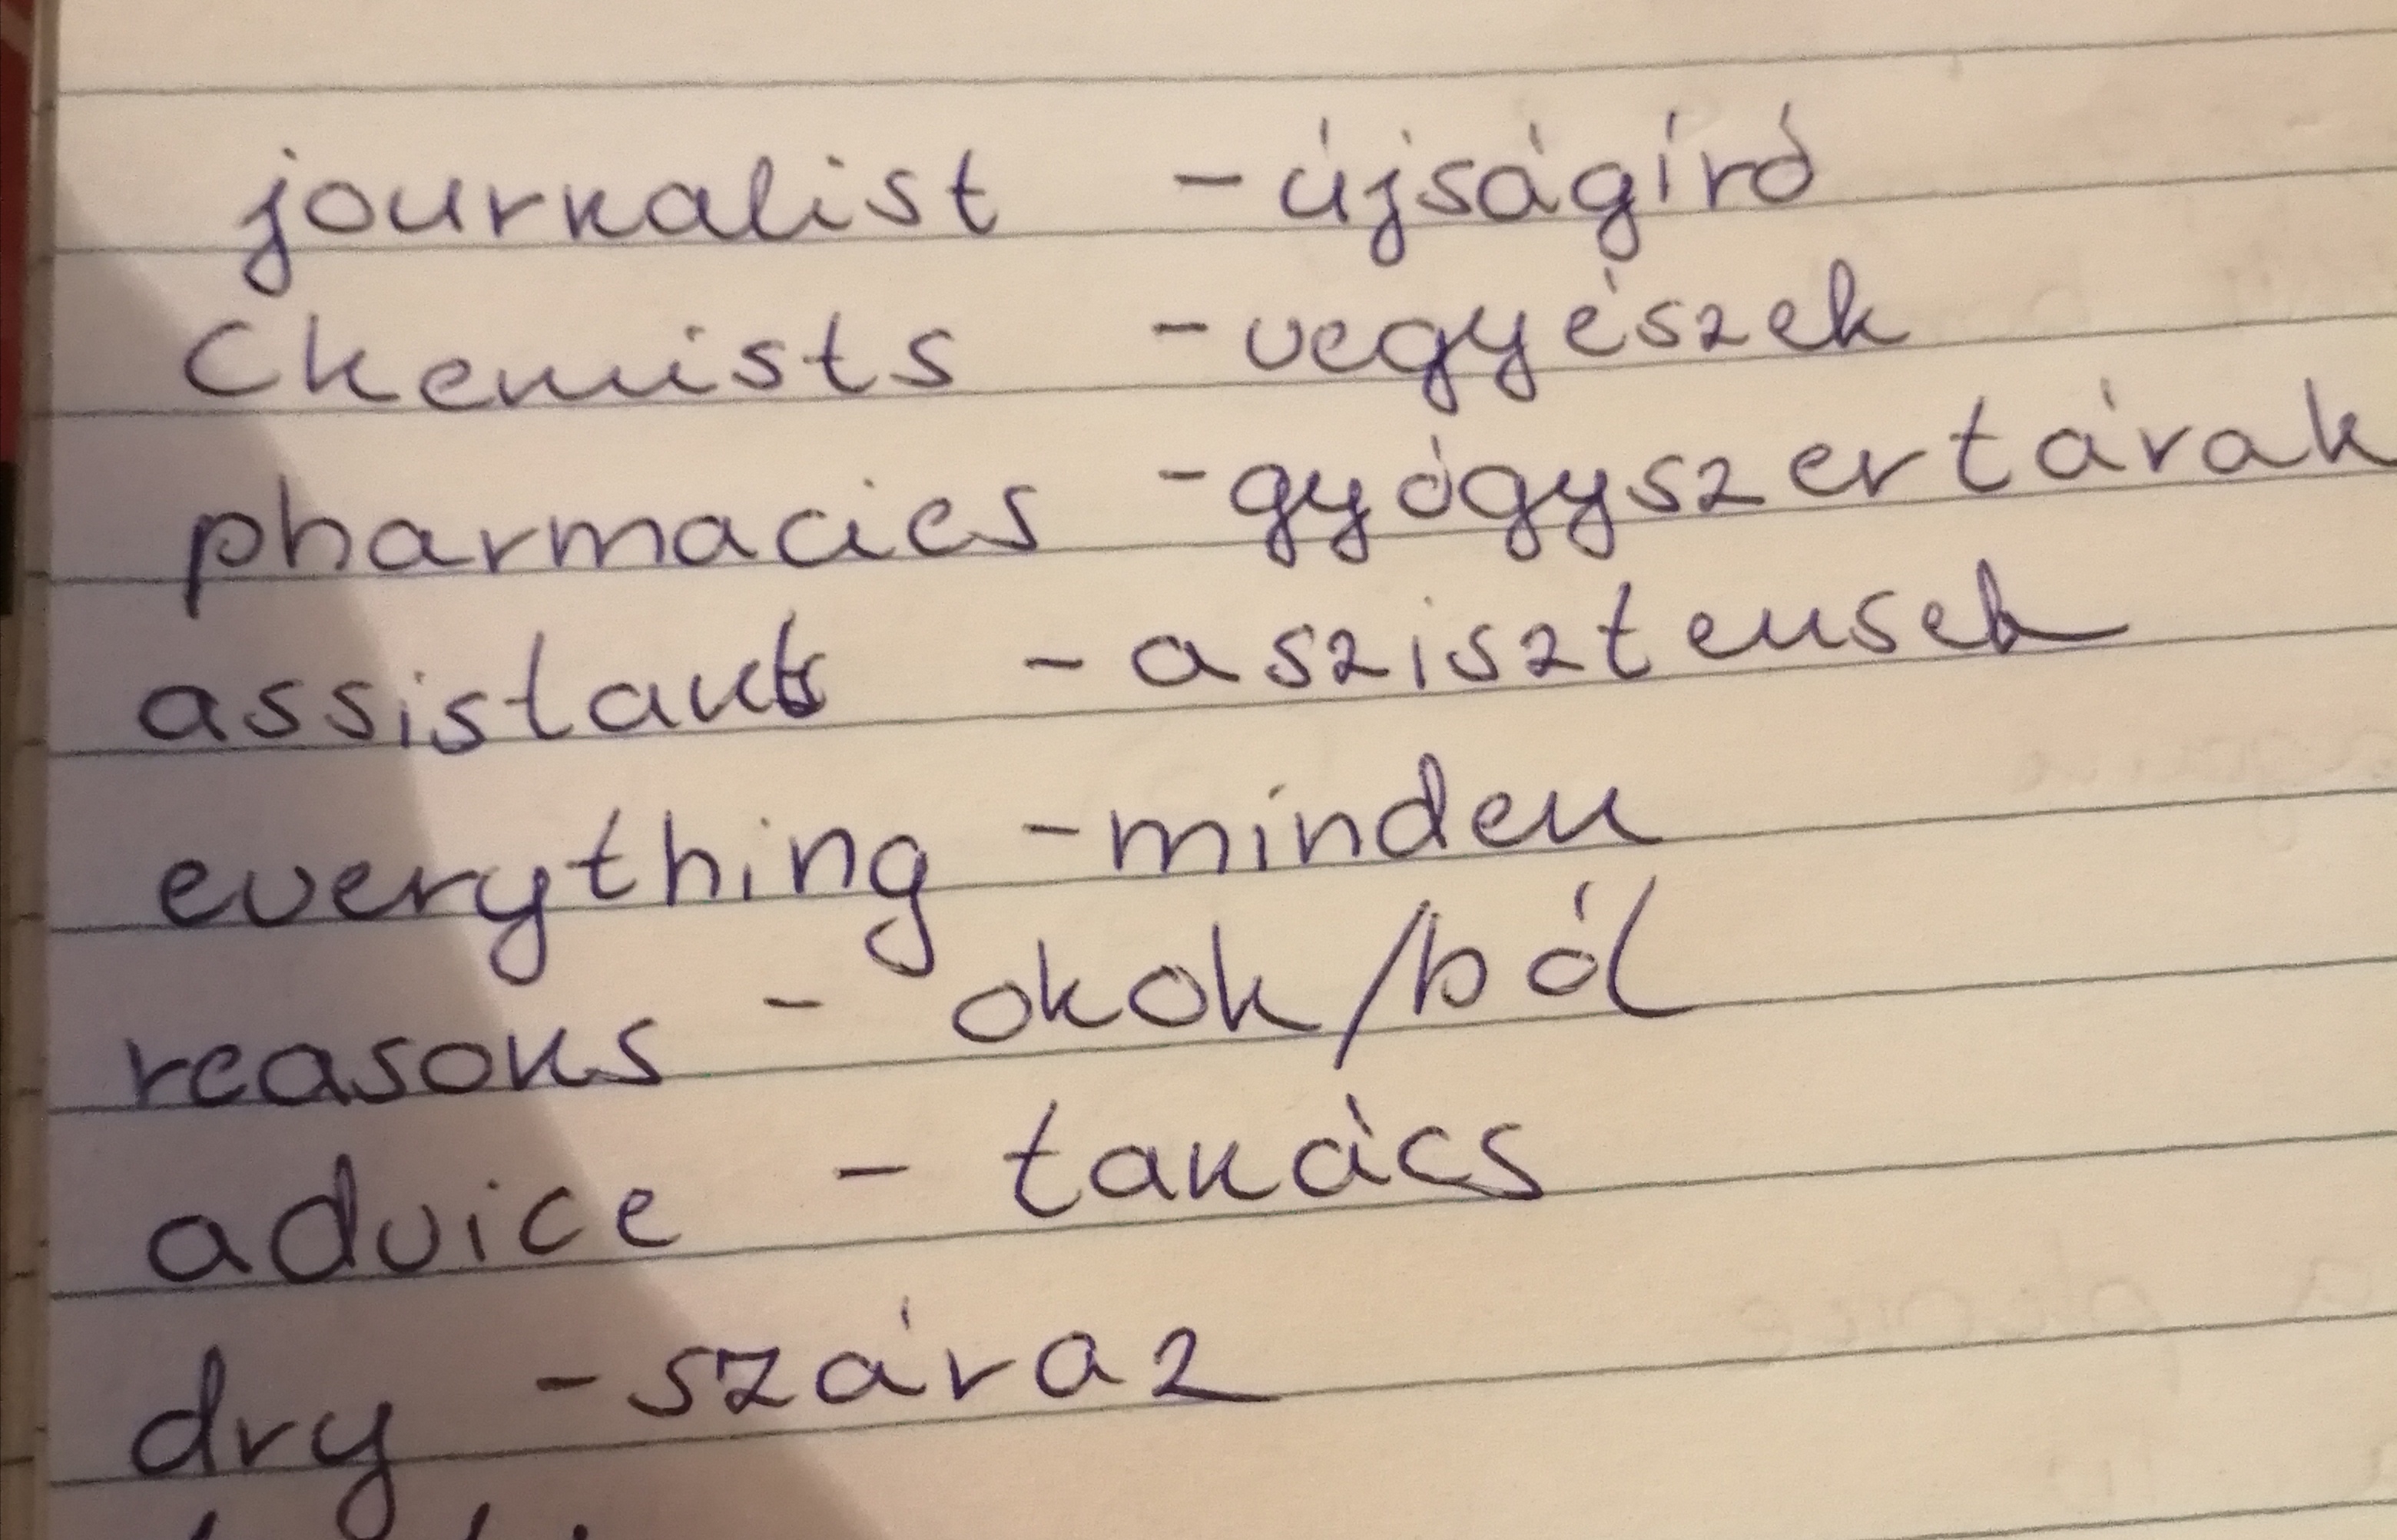 journalist - újságíró
Chemists - vegyészek
pharmacies - gyógyszertárak
assistants - aszisztensek
everything - minden
reasons - okok/ból
advice - tanács
dry - száraz